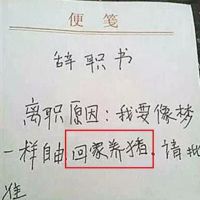 便笺
辞职书
离职原因：我要像梦
一样自由回家养猪.请批
准